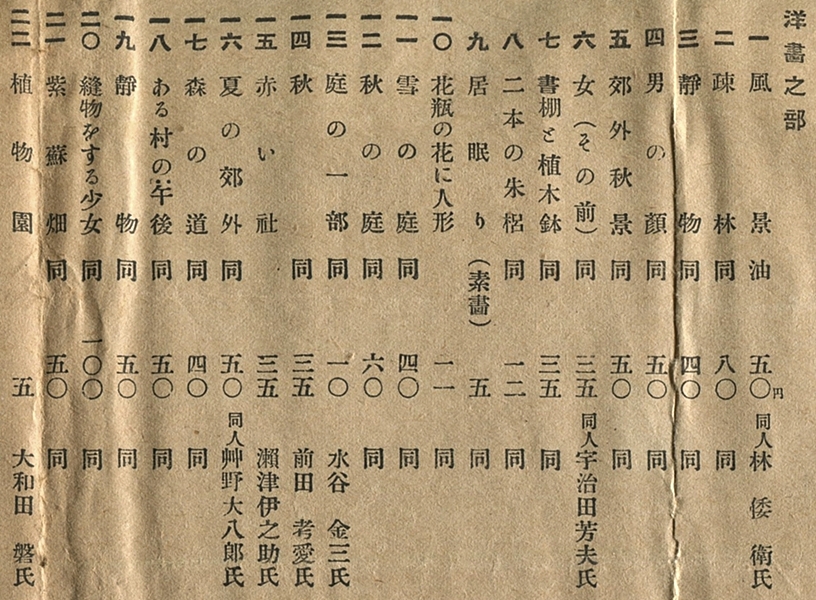 洋畫之部
一 風景 油 五〇円 同人 林倭衛氏
二 疎林 同 八〇 同
三 靜物 同 四〇 同
四 男の顏 同 五〇 同
五 郊外秋景 同 五〇 同
六 女(その前) 同 三五 同人 宇治田芳夫氏
七 書棚と植木鉢 同 三五 同
八 二本の朱梠 同 一二 同
九 居眠り (素畵) 五 同
一〇 花瓶の花に人形 一一 同
一一 雪の庭 同 四〇 同
一二 秋の庭 同 六〇 同
一三 庭の一部 同 一〇 水谷金三氏
一四 秋 同 三五 前田考愛氏
一五 赤い社 三五 瀨津伊之助氏
一六 夏の郊外 同 五〇 同人 艸野大八郎氏
一七 森の道 同 四〇 同
一八 ある村の午後 同 五〇 同
一九 靜物 同 五〇 同
二〇 縫物をする少女 同 一〇〇 同
二一 紫蘇畑 同 五〇 同
二二 植物園 五 大和田磐氏